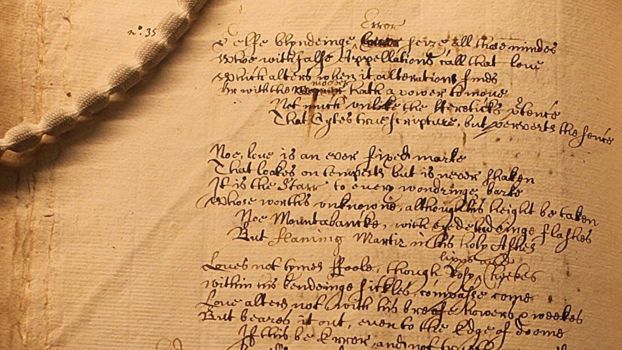 n°. 35
Error
Selfe blyndeinge seize all those mindes
Who with false Appellations call that love
Which alters when it alterations finds
mover
Or with the hath a power to move
Not much unlike the Hereticks p'tence
That Cytes true scripture, but perverts the sence
Noe, love is an ever fixed marke
That lookes on tempests but is never shaken
It is the starr to every wandringe barke
Whose worths unknowne, although his height be taken
Noe Mountabancke, with eye-deludeinge flashes
But flaming Martir in his holy Ashes
lipps and
Loves not tymes ffoole, though Rosy cheekes
within his bendeinge sickles compasse come
Love alters not with his breife howers & weekes
But beares it out, even to the Edge of doome
If this be Error, and not true